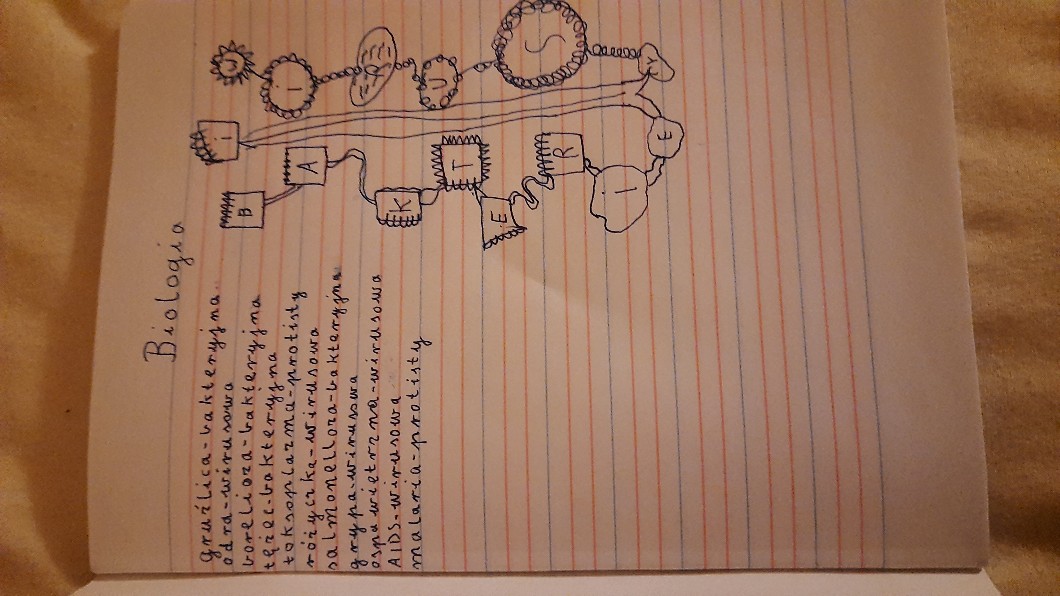 Biologia
gruźlica-bakteryjna
odra-wirusowa
borelioza-bakteryjna
tężec-bakteryjna
toksoplazma-protisty
różyczka-wirusowa
salmonelloza-bakteryjna
grypa-wirusowa
ospa wietrzna-wirusowa
AIDS-wirusowa
malaria-protisty
WiRUSY
i
BAKTERIE